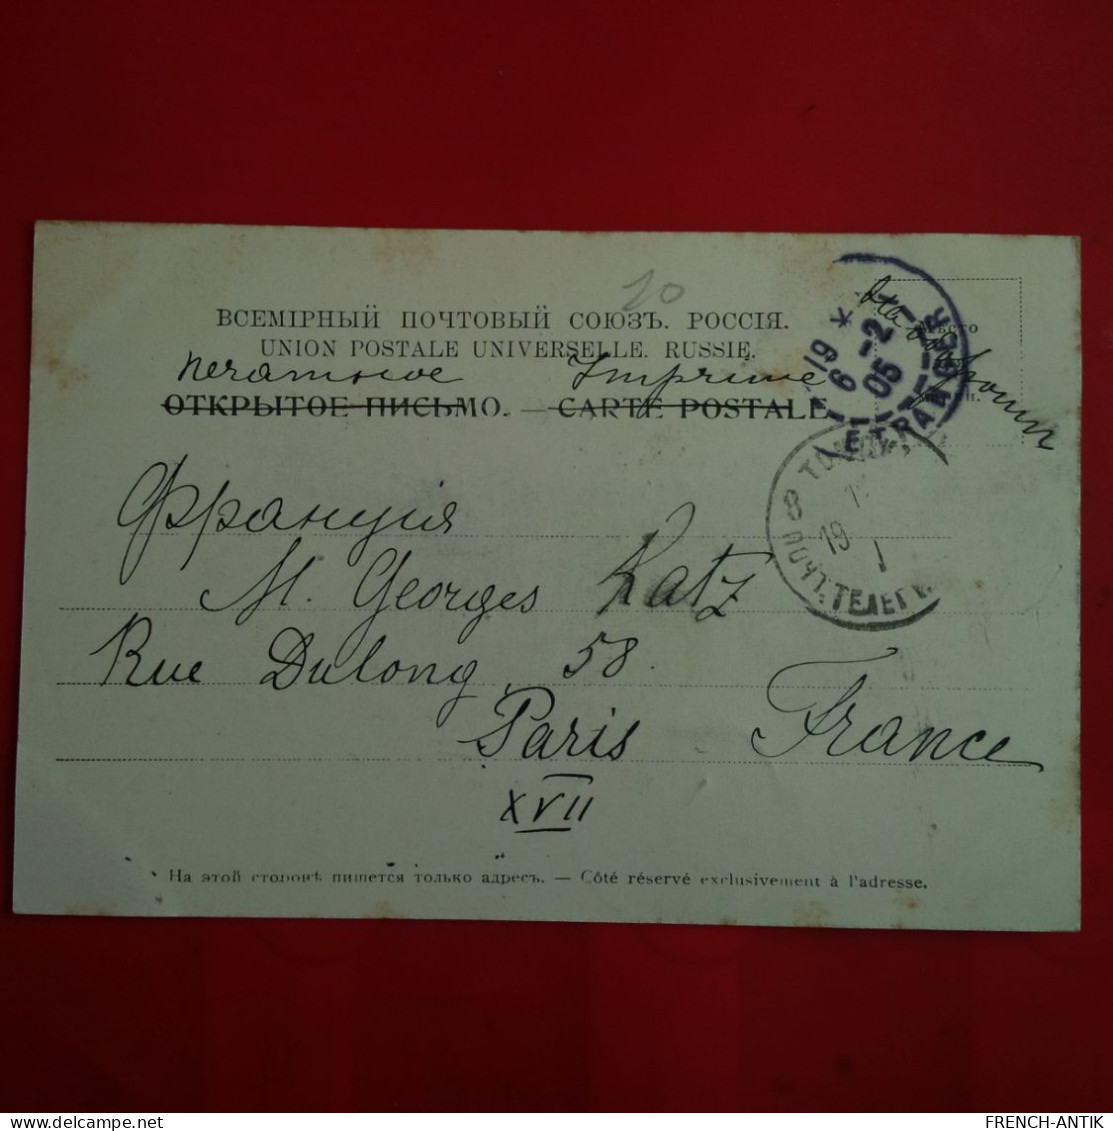 20
ВСЕМІРНЫЙ ПОЧТОВЫЙ СОЮЗЪ. РОССІЯ.
UNION POSTALE UNIVERSELLE. RUSSIE.
печатное Imprimé
ОТКРЫТОЕ ПИСЬМО. — CARTE POSTALE
19 *
6 - 2
05
ETRANGER
8
19
I
ПОЧТ. ТЕЛЕГР.
Франція
M. Georges Katz
Rue Dulong, 58.
Paris France
XVII
На этой сторонѣ пишется только адресъ. — Côté réservé exclusivement à l'adresse.
FRENCH-ANTIK